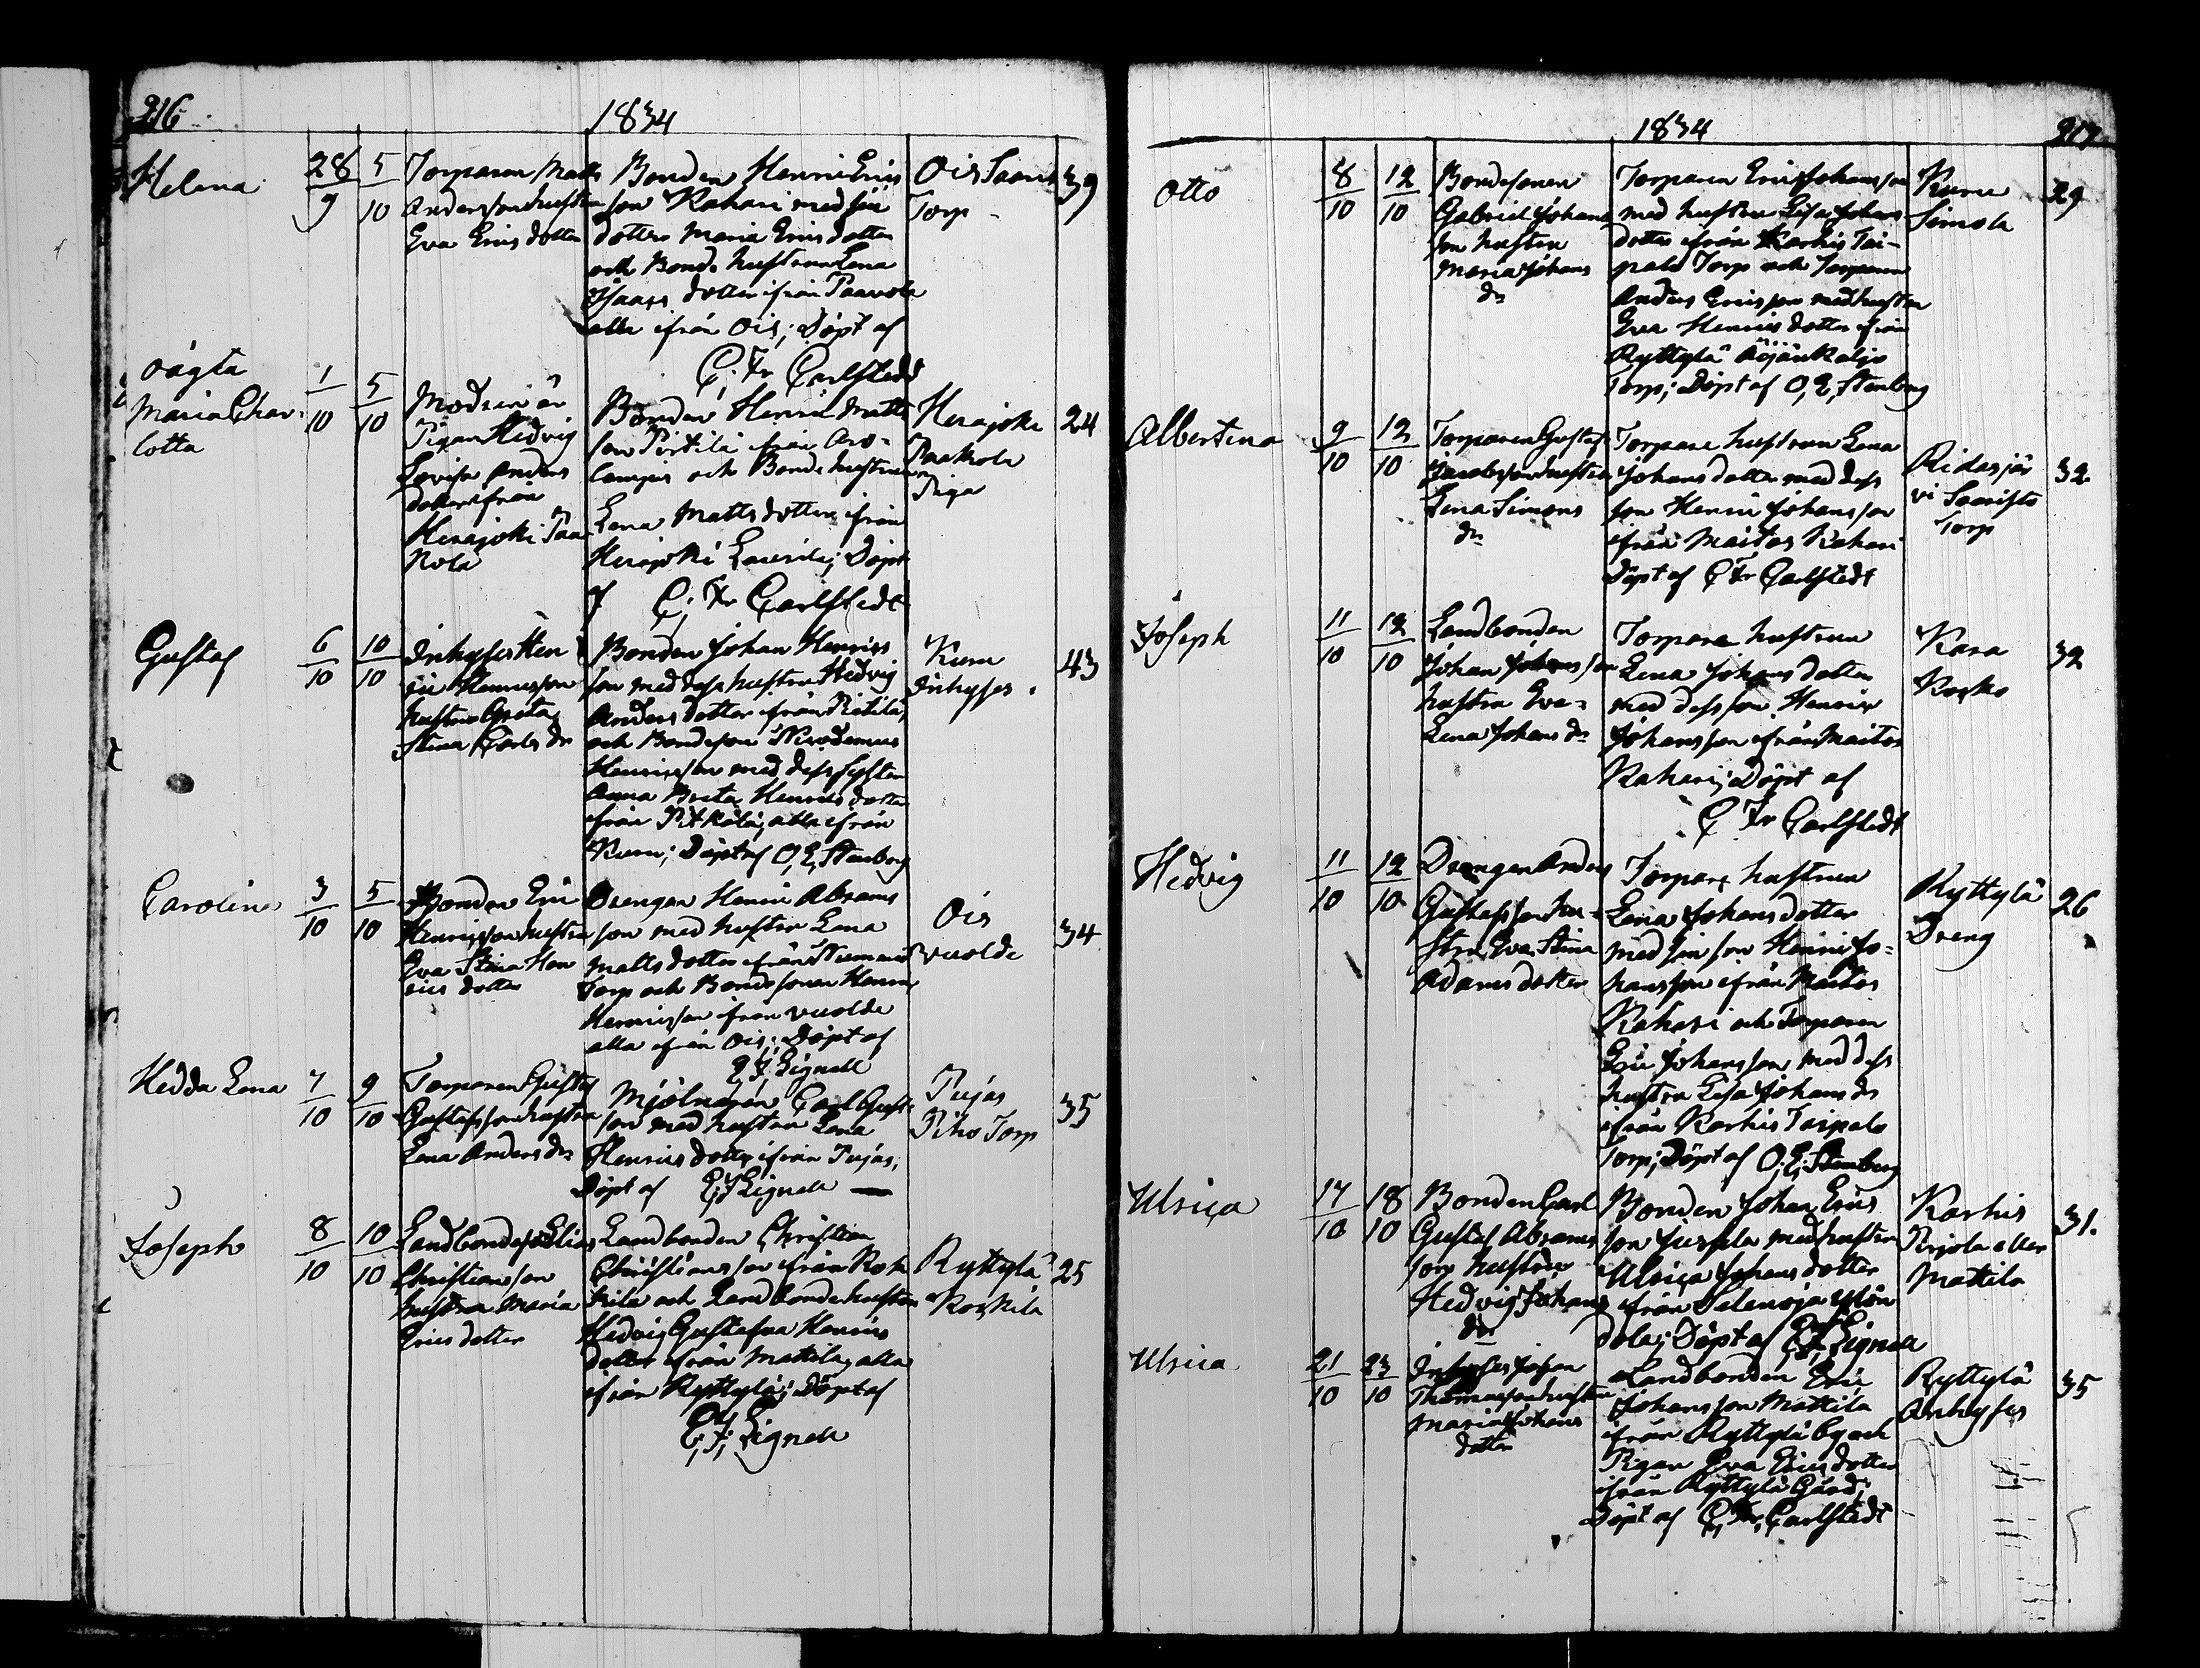 216
1834
Helena
28/9
5/10
Torparen Matts
Andersson hustru
Eva Erics dotter
Bonden Henric Erics
son Kahari med sin
dotter Maria Erics dotter
och Bonde hustrun Lena
Isaacs dotter ifrån Paavola
alla ifrån Ois; Döpt af
C; Fr Carlstedt
Ois
Torp
39
oägta
Maria Char
lotta
1/10
5/10
Modren är
Pigan Hedvig
Lovisa Anders
dotter ifrån
Herajoki Paa
kola
Bonden Henric Matts
son Pertilä ifrån Aro-
lampis och Bonde hustrun
Lena Matts dotter ifrån
Herajoki Laurila; Döpt
af C; Fr Carlstedt
Herajoki
Paakola
Piga
24
Gustaf
6/10
10/10
Inhyses Hen
ric Henricsson
hustru Greta
Stina Carls dr
Bonden Johan Henrics
son med dess hustru Hedvig
Anders dotter ifrån
och Bondeson Nicodemus
Henricsson med dess syster
Anna Brita Henrics dotter
ifrån Pitkälä, alla ifrån
Kuru; Döpt af O, E, Stenberg
Kuru
Inhyses
43
Carolina
3/10
5/10
Bonden Eric
Henricsson hustru
Eva Stina Hen
rics dotter
Drengen Henric Abrams
son med hustru Lena
Matts dotter ifrån
Torp och Bondesonen Henric
Henricsson ifrån Vuolde
alla ifrån Ois; Döpt af
E J Lignell
Ois
Vuolde
34
Hedda Lena
7/10
9/10
Torparen Gustaf
Gustafsson hustru
Lena Anders dr
Mjölnaren Carl Gust.
son med hustru Lena
Henrics dotter ifrån Pujas;
Döpt af E; J Lignell
Pujas
Piho Torp
35
Joseph
8/10
10/10
Landbondes Elias
Christiansson
hustru Maria
Erics dotter
Landbonden Christian
Christiansson ifrån Kos
kila och Landbonde hustrun
Hedvig Gustafva Henrics
dotter ifrån Mattila, alla
ifrån Ryttylä; Döpt af
E; J; Lignell
Ryttylä
Koskila
25
1834
217
Otto
8/10
12/10
Bondesonen
Gabriel Johans
son hustru
Maria Johans
dr
Torparen Eric Johansson
med hustru Lisa Johans
dotter ifrån Karhis Tai-
pale Torp och Torparen
Anders Ericsson med hustru
Eva Henrics dotter ifrån
Ryttylä
Torp; Döpt af O, E, Stenberg
Kuru
Simola
29
Albertina
9/10
12/10
Torparen Gustaf
Jacobsson hustru
Lena Simons
dr
Torpare hustrun Lena
Johans dotter med dess
son Henric Johansson
ifrån Maitos Kahari
Döpt af C Fr Carlstedt
Ridasjär
vi
Torp
32
Joseph
11/10
12/10
Landbonden
Johan Johansson
hustru Eva
Lena Johans dr
Torpare hustrun
Lena Johans dotter
med dess son Henric
Johansson ifrån Maitos
Kahari; Döpt af
C Fr Carlstedt
Kara
Kosko
32
Hedvig
11/10
12/10
Drengen Anders
Gustafsson hu-
stru Eva Stina
Adams dotter
Torpare hustrun
Lena Johans dotter
med sin son Henric Jo-
hansson ifrån Maitos
Kahari och Torparen
Eric Johansson med dess
hustru Lisa Johans dr
ifrån Karhis Taipale
Torp; Döpt af O; E; Stenberg
Ryttylä
Dreng
26
Ulrica
17/10
18/10
Bonden Carl
Gustaf Abrams
son hustru
Hedvig Johans
dr
Bonden Johan Erics
son Jussila med hustru
Ulrica Johans dotter
ifrån
Döpt af E J Lignell
Karhis
Pirjola eller
Mattila
31.
Ulrica
21/10
23/10
Inhyses Johan
Thomasson hustru
Maria Johans
dotter
Landbonden Eric
Johansson Mattila
ifrån Ryttylä by och
Pigan Eva Erics dotter
ifrån Ryttylä Gård;
Döpt af C, Fr, Carlstedt
Ryttylä
Inhyses
35